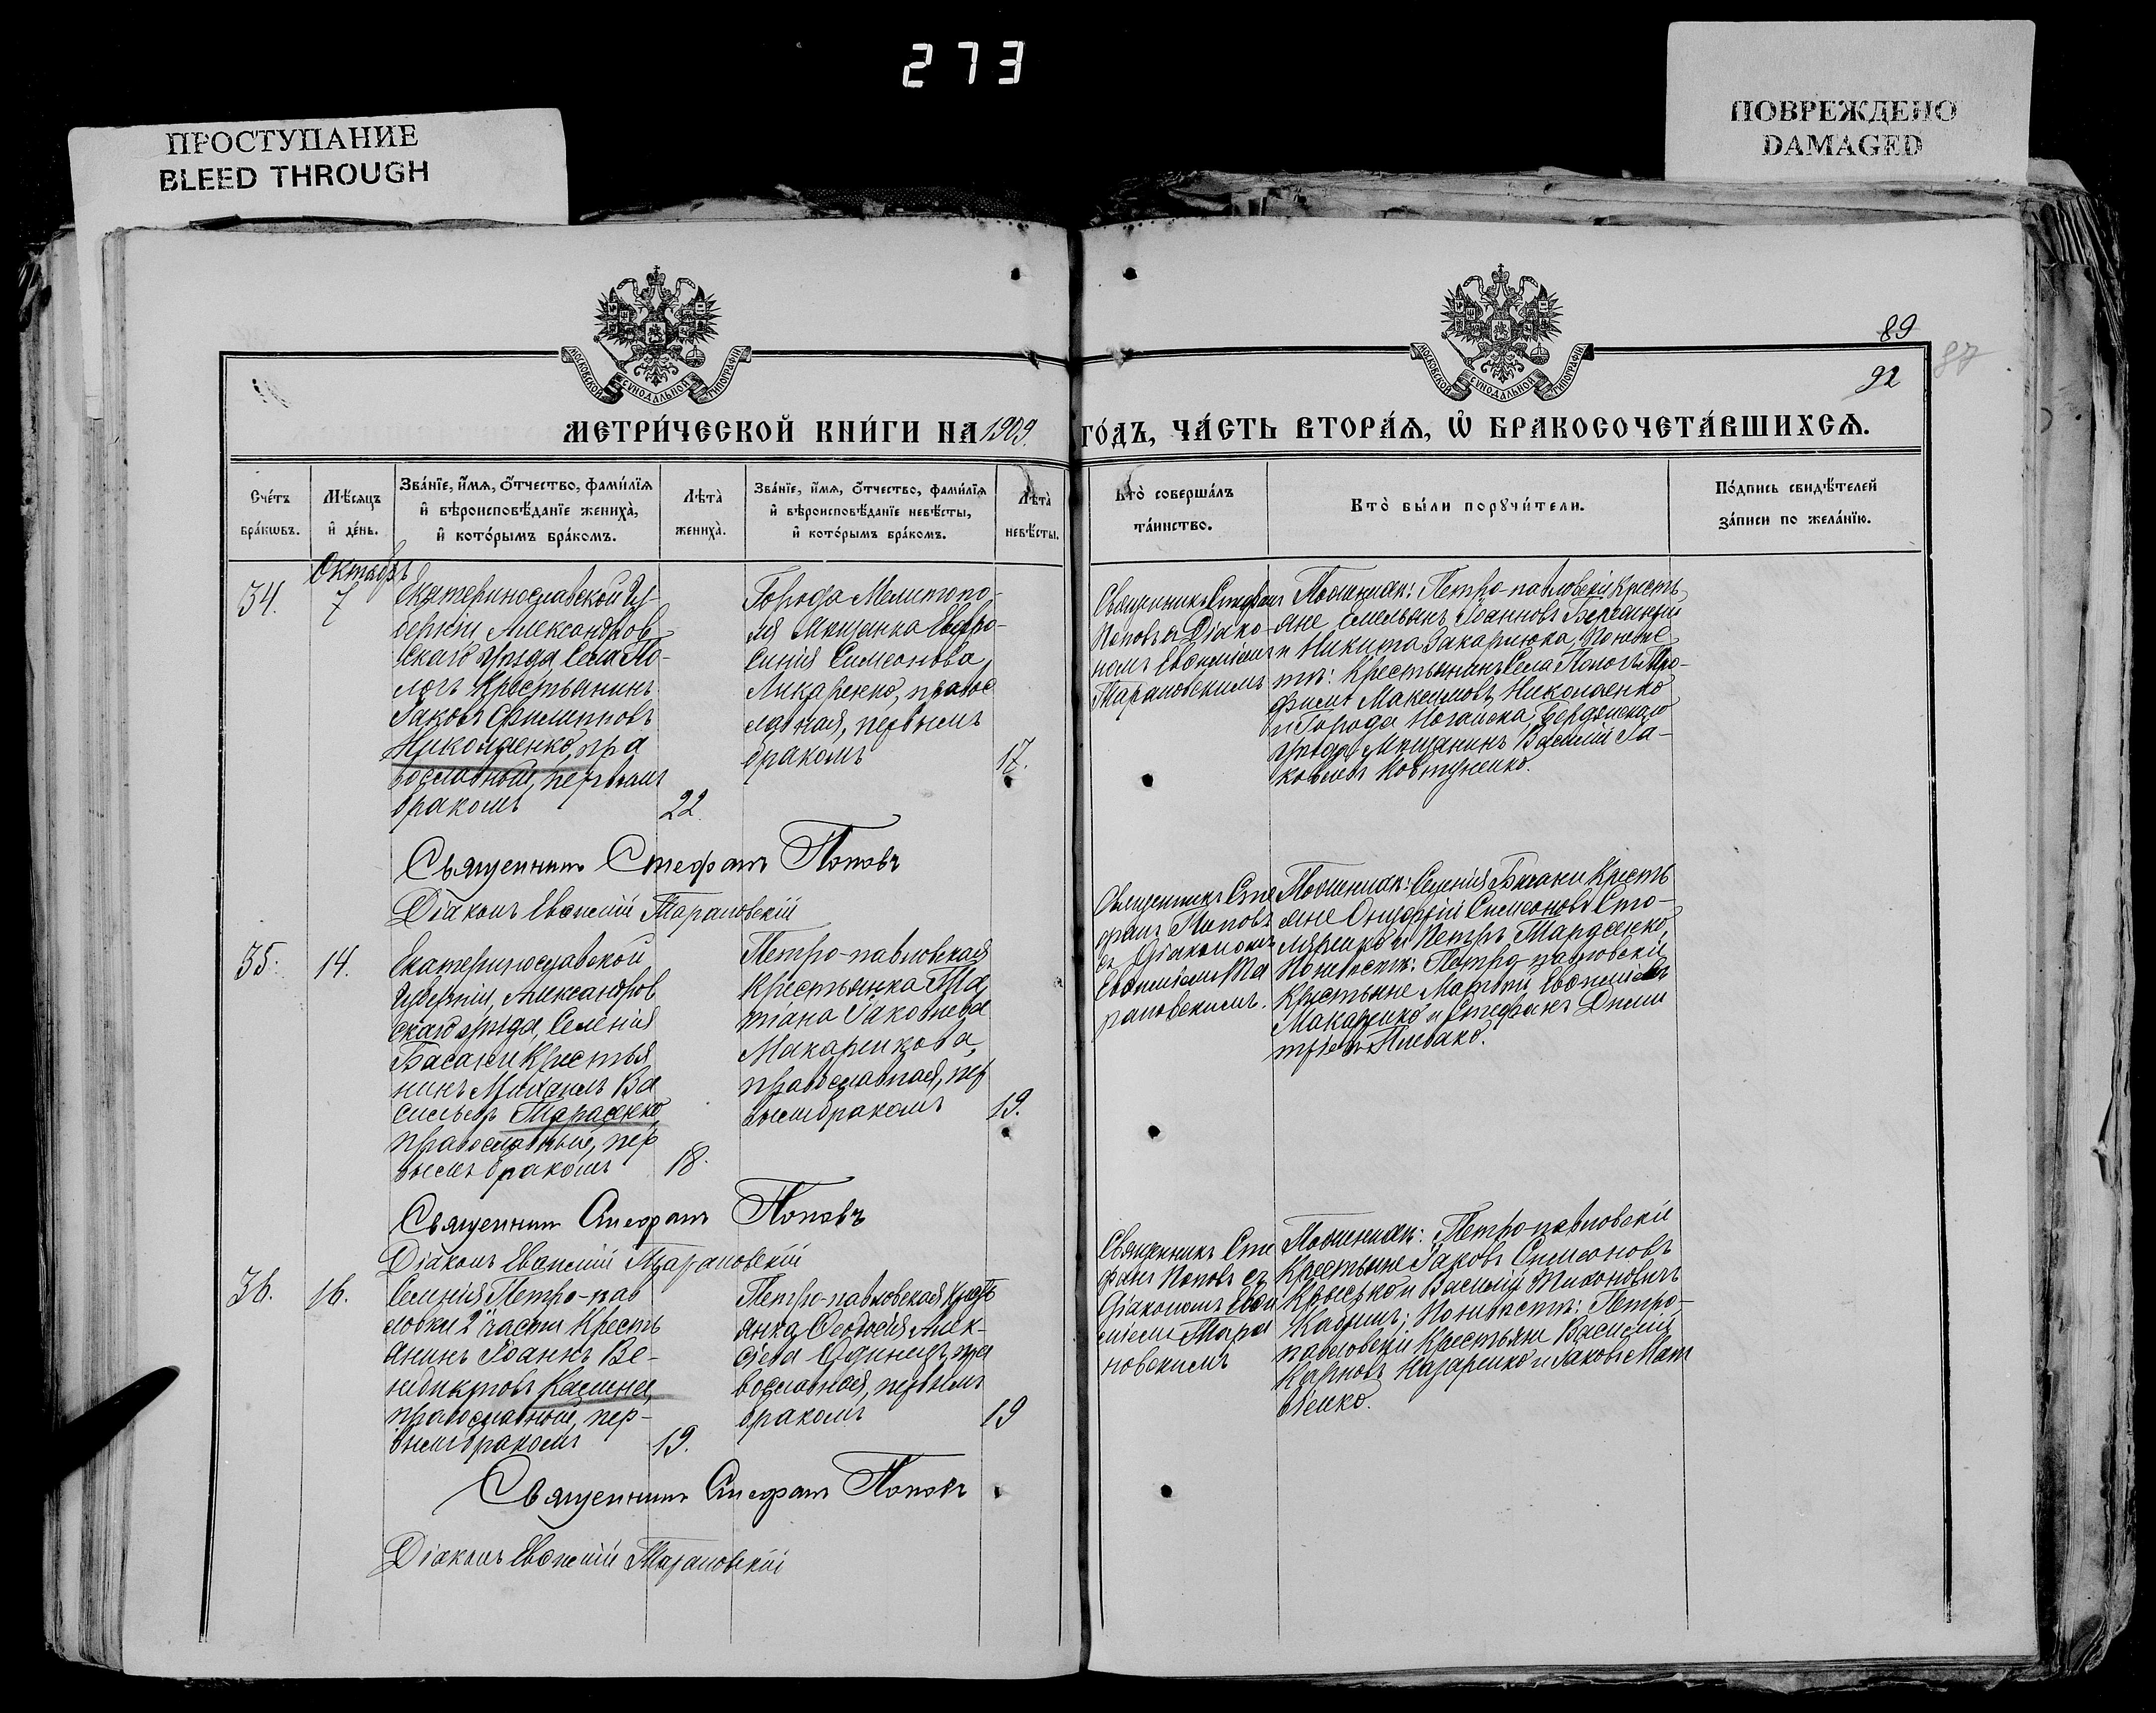 273
ПРОСТУПАНИЕ
BLEED THROUGH
ПОВРЕЖДЕНО
DAMAGED
МОСКОВСКОЙ СѴНОДАЛЬНОЙ ТИПОГРАФІИ
МОСКОВСКОЙ СѴНОДАЛЬНОЙ ТИПОГРАФІИ
89
87
92
МЕТРИ́ЧЕСКОЙ КНИ́ГИ НА 1909 ГО́ДЪ, ЧА́СТЬ ВТОРА́Ѧ, Ѽ БРАКОСОЧЕТА́ВШИХСѦ.
Сче́тъ
бра́кѡвъ.
Мѣ́сяцъ
и҆ де́нь.
Зва́нїе, и҆́мя, ѻ҆́тчество, фами́лїя
и҆ вѣроисповѣ́данїе жениха̀,
и҆ кото́рымъ бра́комъ.
Лѣта̀
жениха̀.
Зва́нїе, и҆́мя, ѻ҆́тчество, фами́лїя
и҆ вѣроисповѣ́данїе невѣ́сты,
и҆ кото́рымъ бра́комъ.
Лѣта̀
невѣ́сты.
Кто̀ соверша́лъ
та́инство.
Кто̀ бы́ли порꙋчи́тели.
По́дпись свидѣ́телей
за́писи по жела́нїю.
34.
Октябрь
7
Екатеринославской Гу-
берніи Александров
скаго уѣзда, Села По-
логъ Крестьянинъ
Іаковъ Филипповъ
Николаенко, пра
вославный, первымъ
бракомъ
22.
Города Мелитопо-
ля Мѣщанка Евфро-
синія Симеонова
Лихаренко, правос
лавная, первымъ
бракомъ
17.
Священникъ Стефанъ
Поповъ и Діако-
номъ Евѳиміемъ
Тарановскимъ
По женихѣ: Петро-павловскіе Кресть
яне Емельянъ Іоанновъ
и Никита Захарлюка, По невѣс
тѣ: Крестьянинъ Села Пологъ Тро-
фимъ Максимовъ Николаенко
и Города Ногайска, Бердянскаго
уѣзда, Мѣщанинъ Василій Іа-
ковлевъ Ковтуненко.
Священникъ Стефанъ Поповъ
Діаконъ Евѳимій Тарановскій
35.
14.
Екатеринославской
Губерніи, Александров
скаго уѣзда, Селенія
Басани Крестья
нинъ Михаилъ Ва
сильевъ Тарасенко,
православный, пер
вымъ бракомъ
18.
Петро-павловская
Крестьянка Та
тіана Іаковлева
Макаренкова,
православная, пер
вымъ бракомъ
19.
Священникъ Сте
фанъ Поповъ
съ Діакономъ
Евѳиміемъ Та
рановскимъ.
По женихѣ: Селенія Басани Кресть
яне Онуфрій Симеоновъ Сто-
ляренко и Петръ Марченко,
По невѣстѣ: Петро-павловскіе
Крестьяне Матѳій Евѳиміевъ
Макаренко и Стефанъ Дими
тріевъ Плевако.
Священникъ Стефанъ Поповъ
Діаконъ Евѳимій Тарановскій
36.
16.
Селенія Петро-пав
ловки 2 части Кресть
янинъ Іоаннъ Ве-
недиктовъ Калина,
православный, пер-
вымъ бракомъ
19.
Петро-павловская Крест
янка Ѳеодосія Алек-
сѣева Одинецъ, пра
вославная, первымъ
бракомъ
19
Священникъ Сте
фанъ Поповъ съ
Діакономъ Евѳи
міемъ Тара
новскимъ
По женихѣ: Петро-павловскіе
Крестьяне Іаковъ Симеоновъ
и Василій Тихоновичъ
По невѣстѣ: Петро-
павловскіе Крестьяне Василій
Карповъ Назаренко и Іаковъ Мат
віенко.
Священникъ Стефанъ Поповъ
Діаконъ Евѳимій Тарановскій